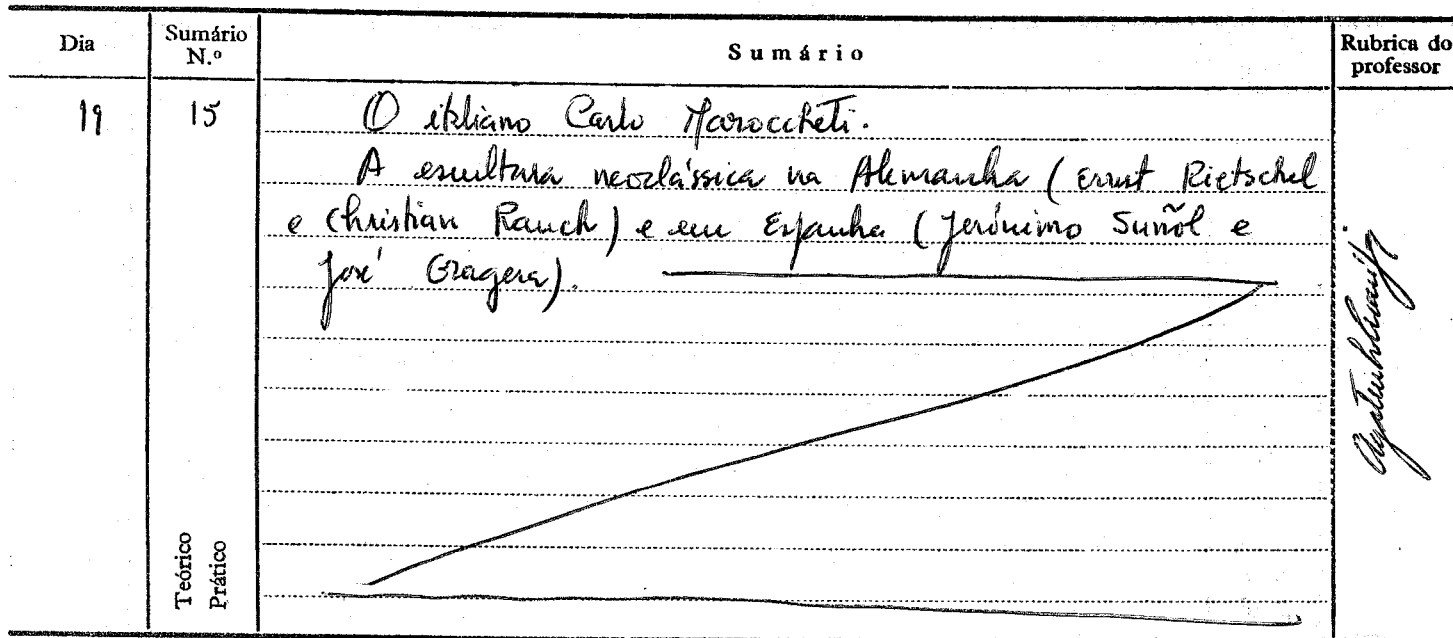 Dia
Sumário N.º
Sumário
Rubrica do professor
19
15
O italiano Carlo Maroccheti.
A escultura neoclássica na Alemanha (Ernst Rietschel
e Christian Rauch) e em Espanha (Jerónimo Suñol e
José Gragera).
Teórico
Prático